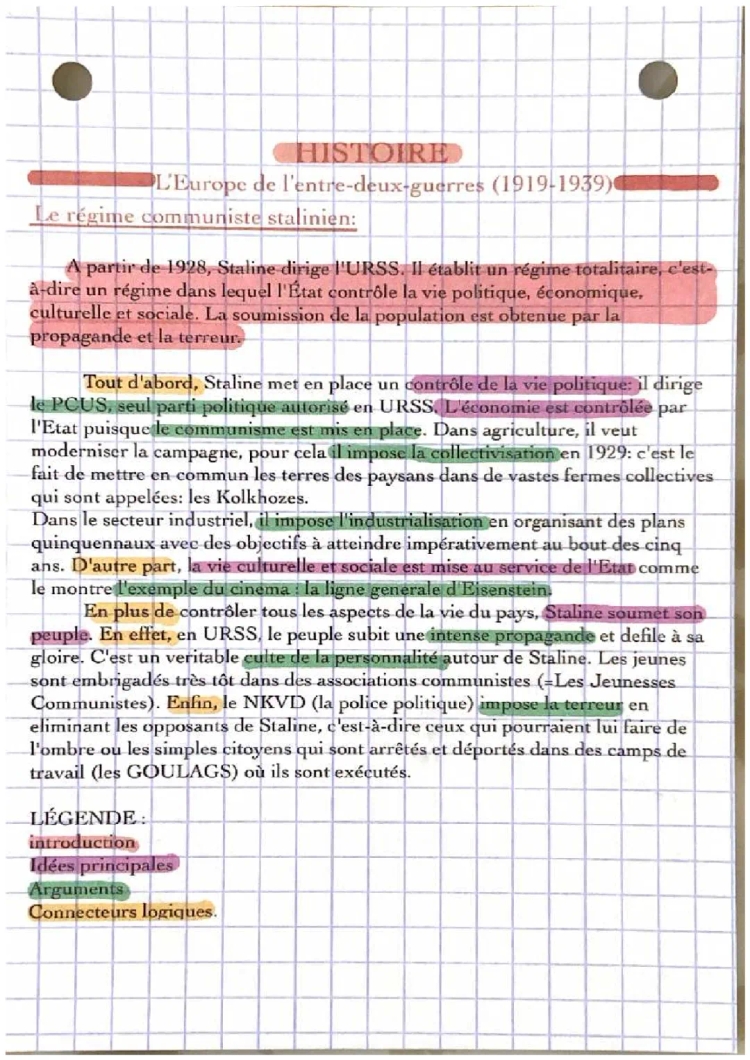 HISTOIRE
L'Europe de l'entre-deux-guerres (1919-1939)
Le régime communiste stalinien:
A partir de 1928, Staline dirige l'URSS. Il établit un régime totalitaire, c'est-
à-dire un régime dans lequel l'État contrôle la vie politique, économique,
culturelle et sociale. La soumission de la population est obtenue par la
propagande et la terreur.
Tout d'abord, Staline met en place un contrôle de la vie politique: il dirige
le PCUS, seul parti politique autorisé en URSS. L'économie est contrôlée par
l'Etat puisque le communisme est mis en place. Dans agriculture, il veut
moderniser la campagne, pour cela il impose la collectivisation en 1929: c'est le
fait de mettre en commun les terres des paysans dans de vastes fermes collectives
qui sont appelées: les Kolkhozes.
Dans le secteur industriel, il impose l'industrialisation en organisant des plans
quinquennaux avec des objectifs à atteindre impérativement au bout des cinq
ans. D'autre part, la vie culturelle et sociale est mise au service de l'Etat comme
le montre l'exemple du cinema : la ligne generale d'Eisenstein.
En plus de contrôler tous les aspects de la vie du pays, Staline soumet son
peuple. En effet, en URSS, le peuple subit une intense propagande et defile à sa
gloire. C'est un veritable culte de la personnalité autour de Staline. Les jeunes
sont embrigadés très tôt dans des associations communistes (=Les Jeunesses
Communistes). Enfin, le NKVD (la police politique) impose la terreur en
eliminant les opposants de Staline, c'est-à-dire ceux qui pourraient lui faire de
l'ombre ou les simples citoyens qui sont arrêtés et déportés dans des camps de
travail (les GOULAGS) où ils sont exécutés.
LÉGENDE :
introduction
Idées principales
Arguments
Connecteurs logiques.